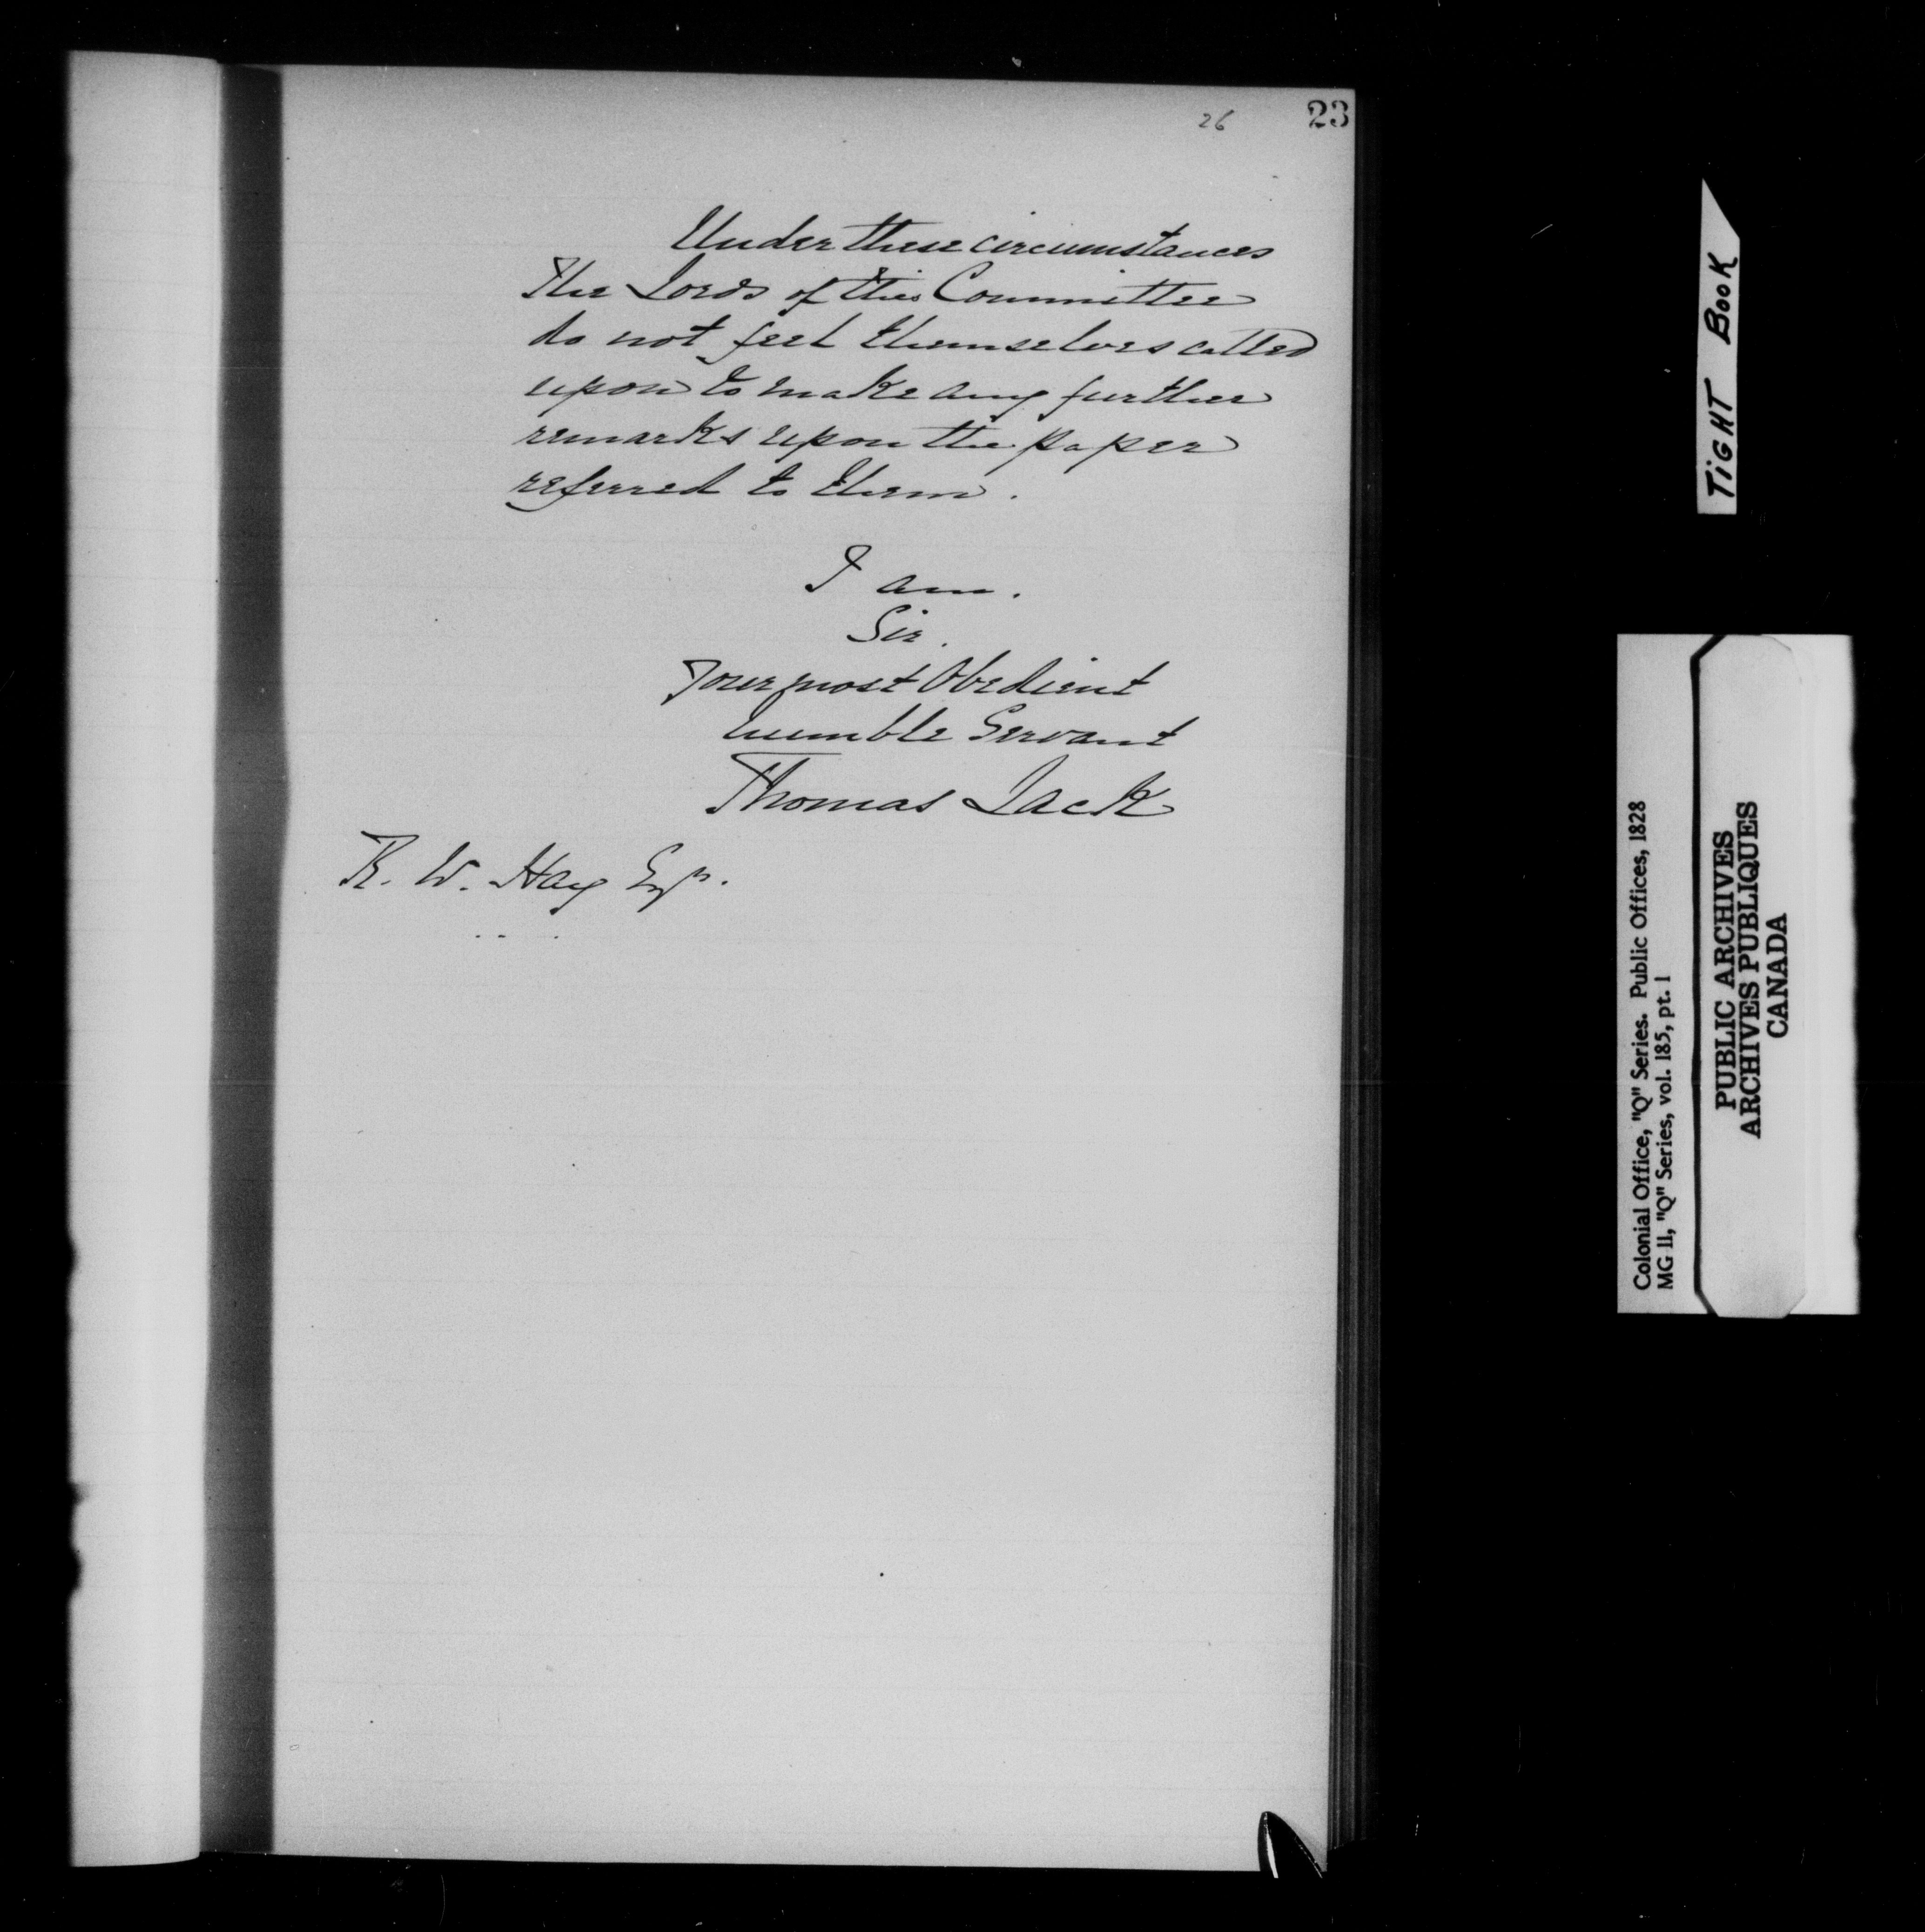 26
23
Under these circumstances
The Lords of this Committee
do not feel themselves called
upon to make any further
remarks upon the paper
referred to them.
I am.
Sir.
Your most Obedient
humble Servant
Thomas Lack
R. W. Hay Esqr.
TIGHT BOOK
Colonial Office, "Q" Series. Public Offices, 1828
MG 11, "Q" Series, vol. 185, pt. 1
PUBLIC ARCHIVES
ARCHIVES PUBLIQUES
CANADA